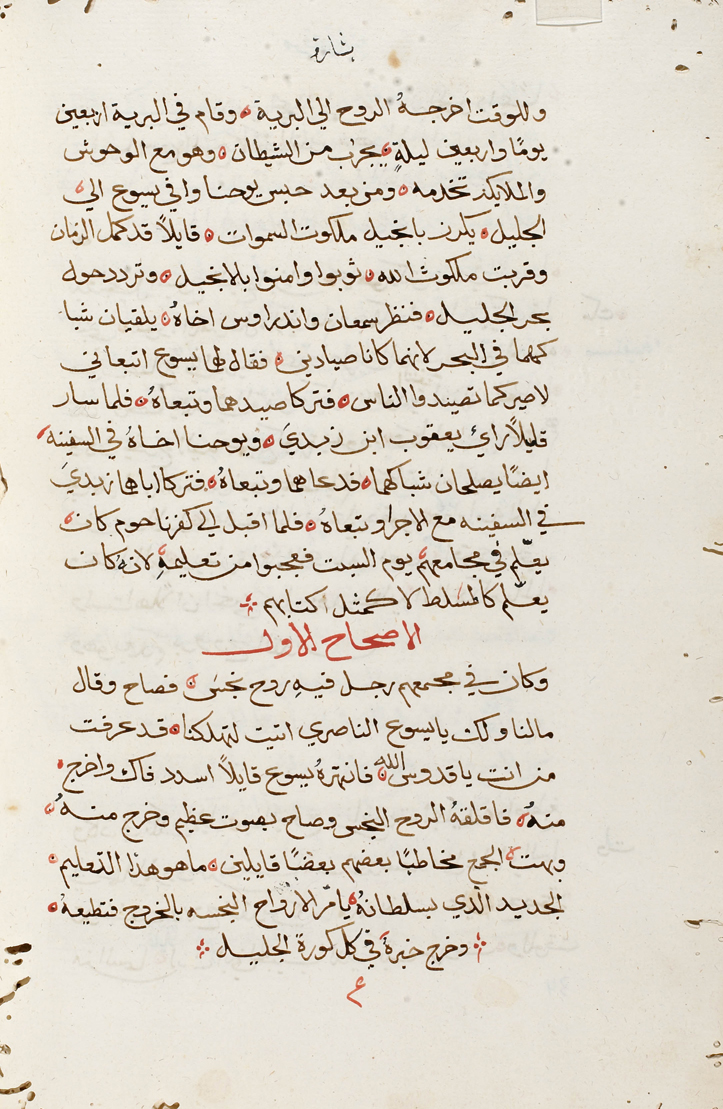 بشارة
وللوقت اخرجهُ الروح الي البرية ۞ وقام في البرية اربعين
يومًا واربعين ليلةٍ ۞ يجرب من الشيطان ۞ وهو مع الوحوش
والملايكة تخدمه ۞ ومن بعد حبس يوحنا وافي يسوع الي
الجليل ۞ يكرز بانجيل ملكوت السموات ۞ قايلاً قد كمل الزمان
وقربت ملكوت الله ۞ توبوا وامنوا بالانجيل ۞ وتردد حول
بحر الجليل ۞ فنظر سمعان واندراوس اخاهُ ۞ يلقيان شبا
كهما في البحر لانهما كانا صيادين ۞ فقال لهما يسوع اتبعاني
لاصيركما تصيدوا الناس ۞ فتركا صيدهما وتبعاهُ ۞ فلما سار
قليلاً راي يعقوب ابن زبدي ۞ ويوحنا اخاهُ في السفينه
ايضًا يصلحان شباكهما ۞ فدعاهما وتبعاهُ ۞ فتركا اباهما زبدي
في السفينه مع الاجرا وتبعاهُ ۞ فلما اقبل الي كفرناحوم كان
يعلّم في مجامعهم يوم السبت فعجبوا من تعليمهِ لانه كان
يعلّم كالمسلط لا كمثل اكتابهم ۞
الاصحاح الاول
وكان في مجمعهم رجل فيهِ روح نجس ۞ فصاح وقال
مالنا ولك يا يسوع الناصري اتيت لتهلكنا ۞ قد عرفت
من انت يا قدوس الله ۞ فانتهرهُ يسوع قايلاً اسدد فاك واخرج
منهُ ۞ فاقلقهُ الروح النجس وصاح بصوت عظيم وخرج منهُ ۞
وبهت الجمع مخاطبًا بعضهم بعضًا قايلين ۞ ما هو هذا التعليم
الجديد الذي بسلطانهُ يامر الارواح النجسه بالخروج فتطيعهُ ۞
۞ وخرج خبرهُ في كل كورة الجليل ۞